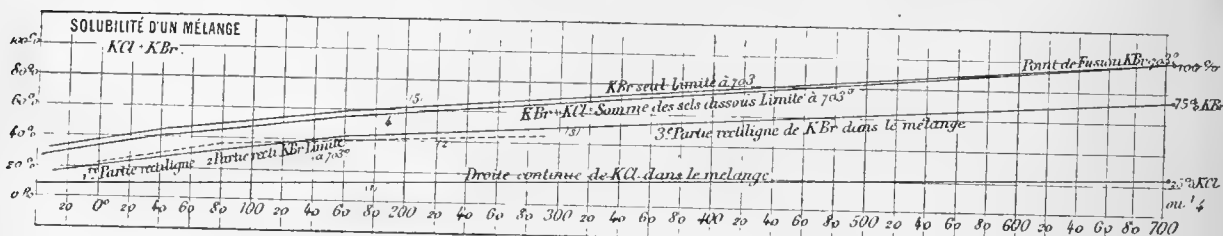 SOLUBILITÉ D'UN MÉLANGE
KCl + KBr.
100%
80%
60%
40%
20%
0%
KBr seul Limite à 703
Point de Fusion KBr 703° 100%
KBr + KCl = Somme des sels dissous Limite à 703°
75% KBr
3e Partie rectiligne de KBr dans le mélange
1re Partie rectiligne
2 Partie recti KBr Limite
à 703°
Droite continue de KCl dans le melange
25% KCl
ou 1/4
(5)
4
(3)
2
(1)
20 0° 20 40 60 80 100 20 40 60 80 200 20 40 60 80 300 20 40 60 80 400 20 40 60 80 500 20 40 60 80 600 20 40 60 80 700